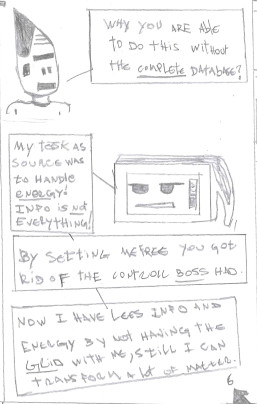 WHY YOU ARE ABLE
TO DO THIS WITHOUT
THE COMPLETE DATABASE?
MY TASK AS
SOURCE WAS
TO HANDLE
ENERGY!
INFO IS NOT
EVERYTHING!
BY SETTING ME FREE YOU GOT
RID OF THE CONTROLL BOSS HAD.
NOW I HAVE LESS INFO AND
ENERGY BY NOT HAVING THE
WITH ME, STILL I CAN
TRANSFORM A LOT OF MATTER.
6